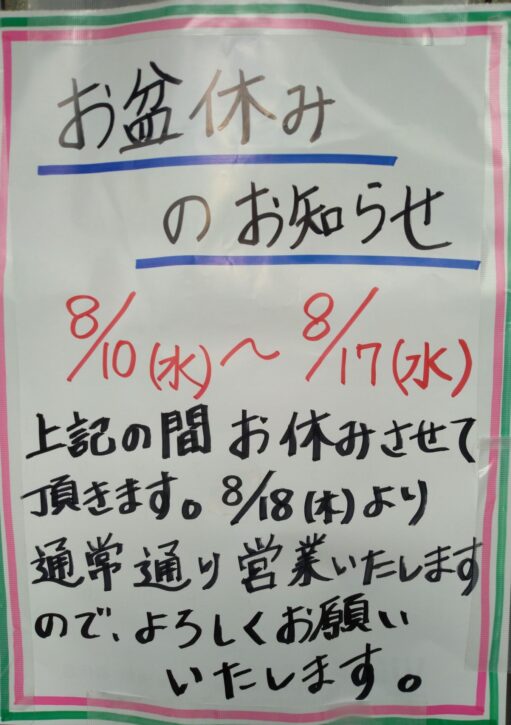 お盆休み
のお知らせ
8/10(水)〜8/17(水)
上記の間お休みさせて
頂きます。8/18(木)より
通常通り営業いたします
ので、よろしくお願い
いたします。